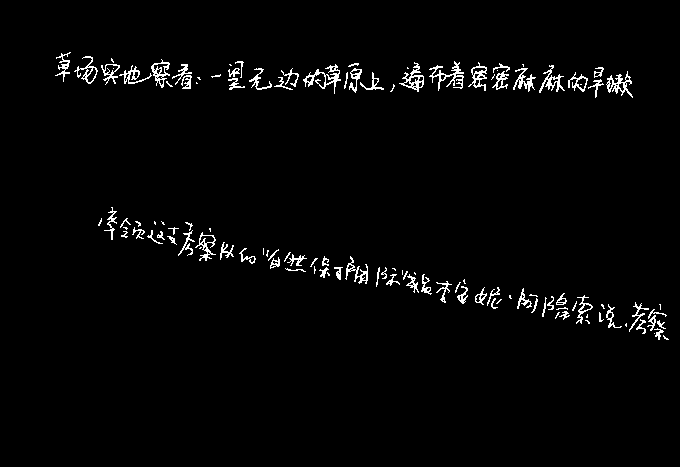 草场实地察看:一望无边的草原上,遍布着密密麻麻的旱獭
率领这支考察队的“自然保护国际”成员李宝妮·阿隆索说,考察